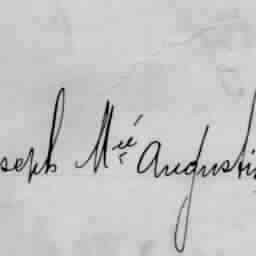 seph Mᶜᶜ Augusti